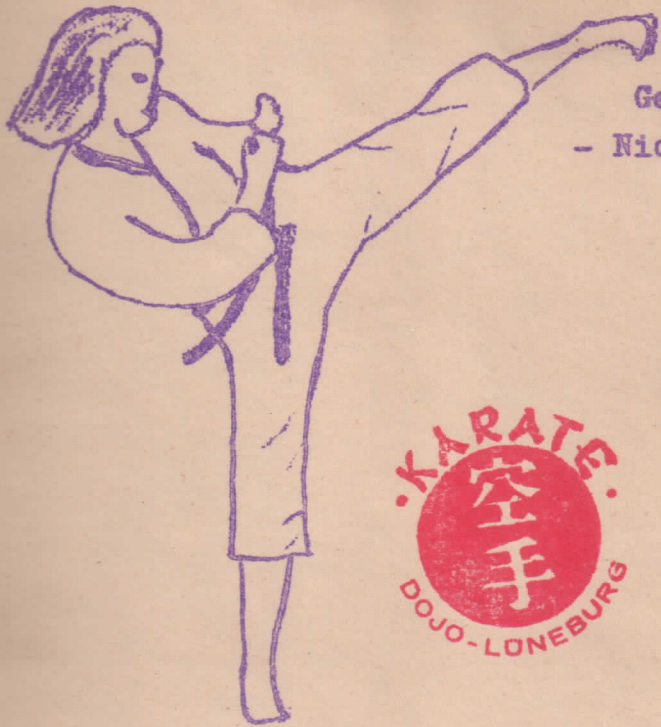 Ge
- Nic
·KARATE·
空
手
DOJO-LÜNEBURG